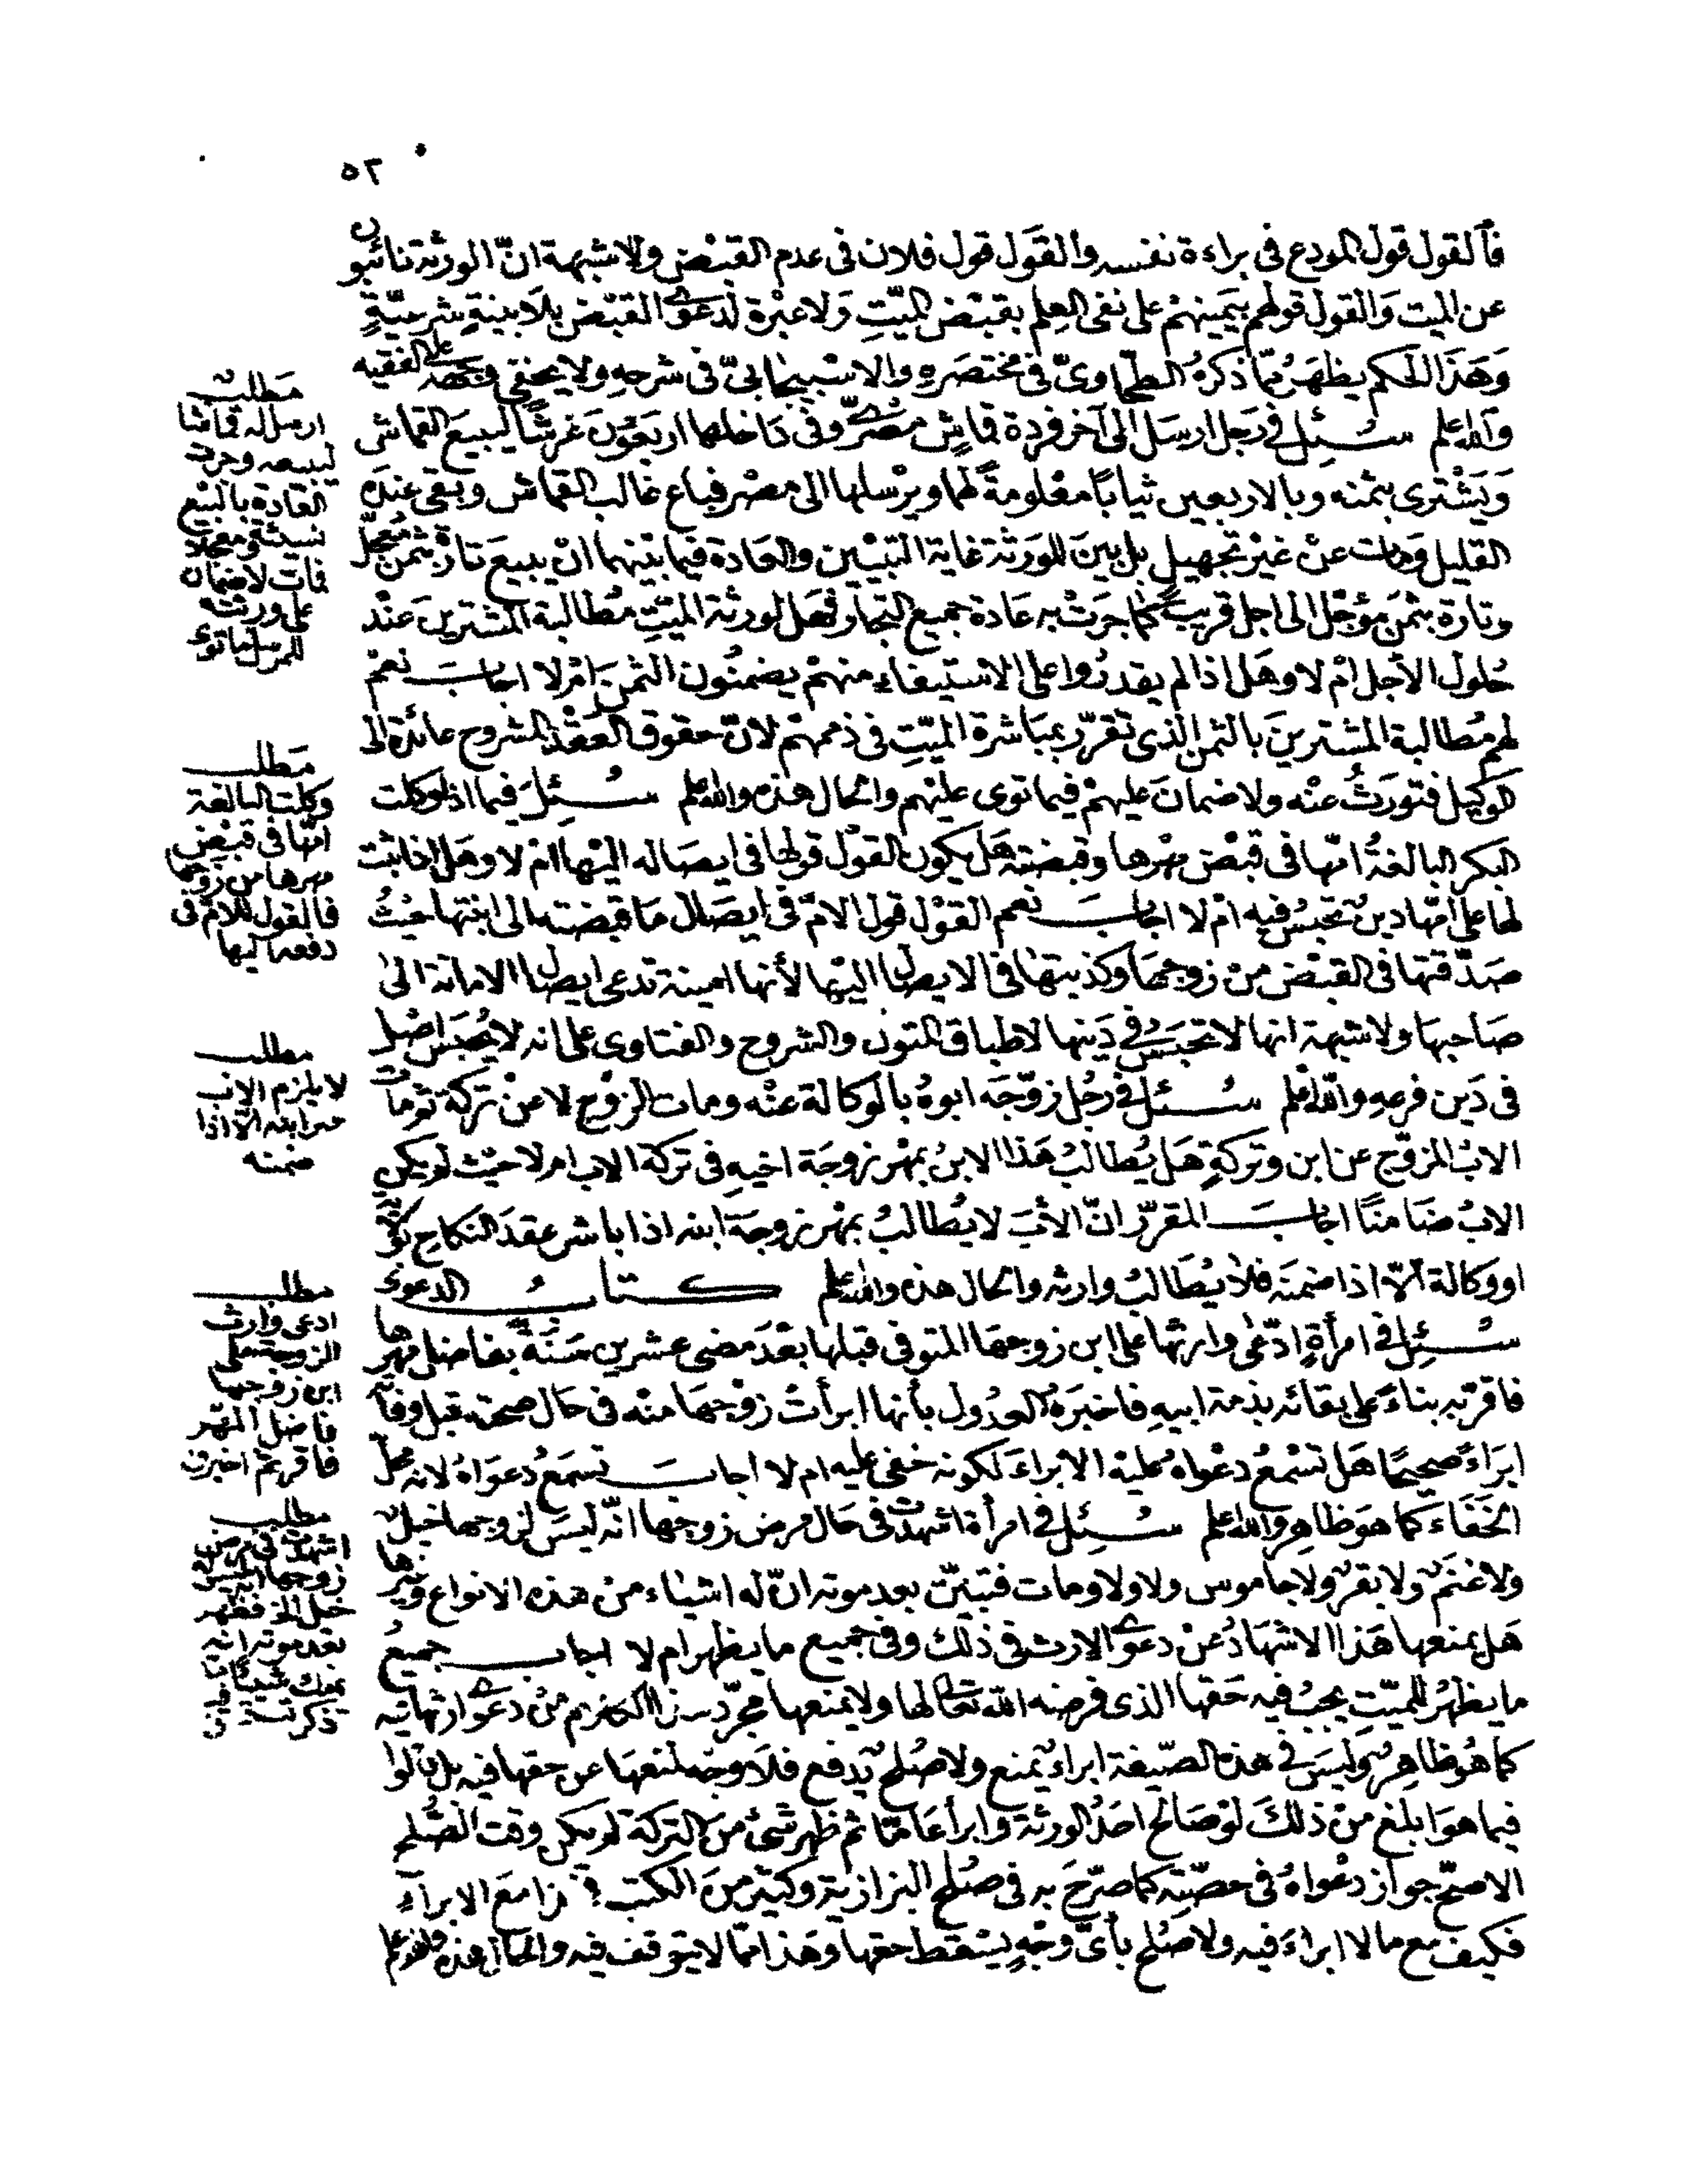 ٥٢
فالقول قول المودع فى براءة نفسه والقول قول فلان فى عدم القبض ولا شبهة انّ الورثة نائبون
عن الميت والقول قولهم بيمينهم على نفى العلم بقبض الميّت ولا عبرة لدعوى القبض بلا بينة شرعيّة
وهذا الحكم يظهر ممّا ذكره الطحاوىّ فى مختصره والاسبيجابىّ فى شرحه ولا يخفى وجهه على الفقيه
والله اعلم سئل فى رجل ارسل الى آخر فردة قماش مصرىّ وفى داخلها اربعون غرشا ليبيع القماش
ويشترى بثمنه وبالاربعين ثيابا معلومة لها ويرسلها الى مصر فباع غالب القماش وبقى عنده
القليل ومات عن غير تجهيل بل بين للورثة غاية التبيين والعادة فيما بينهما ان يبيع تارة بثمن معجّل
وتارة بثمن مؤجّل الى اجل قريب كما جرت به عادة جميع التجار فهل لورثة الميّت مطالبة المشترين عند
حلول الأجل ام لا وهل اذا لم يقدروا على الاستيفاء منهم يضمنون الثمن ام لا اجاب نعم
لهم مطالبة المشترين بالثمن الذى تقرّر بمباشرة الميّت فى ذممهم لانّ حقوق العقد المشروح عائدة الى
الوكيل فتورث عنه ولا ضمان عليهم فيما توى عليهم والحال هذه والله اعلم سئل فيما اذا وكلت
البكر البالغة امّها فى قبض مهرها وقبضته هل يكون القول قولها فى ايصاله اليها ام لا وهل اذا ثبت
لها على امّها دين تحبس فيه ام لا اجاب نعم القول قول الامّ فى ايصال ما قبضته الى ابنتها حيث
صدّقتها فى القبض من زوجها وكذبتها فى الايصال اليها لأنها امينة تدعى ايصال الامانة الى
صاحبها ولا شبهة انها لا تحبس فى دينها لاطباق المتون والشروح والفتاوى على انه لا يحبس اصل
فى دين فرعه والله اعلم سئل فى رجل زوّجه ابوه بالوكالة عنه ومات الزوج لا عن تركة ثم مات
الاب المزوّج عن ابن وتركة هل يطالب هذا الابن بمهر زوجة اخيه فى تركة الاب ام لا حيث لم يكن
الاب ضامنا اجاب المقرّر انّ الأب لا يطالب بمهر زوجة ابنه اذا باشر عقد النكاح
او وكالة الّا اذا ضمنه فلا يطالب وارثه والحال هذه والله اعلم كتاب الدعوى
سئل فى امرأة ادّعى وارثها على ابن زوجها المتوفى قبلها بعد مضى عشرين سنة بفاضل مهرها
فاقر به بناء على بقائه بذمة ابيه فاخبره العدول بأنها ابرأت زوجها منه فى حال صحته قبل وفاته
ابراء صحيحا هل تسمع دعواه عليه الابراء لكونه خفى عليه ام لا اجاب تسمع دعواه لانه محلّ
الخفاء كما هو ظاهر والله اعلم سئل فى امرأة اشهدت فى حال مرض زوجها انّه ليس لزوجها خيل
ولا غنم ولا بقر ولا جاموس ولا ولا ومات فتبيّن بعد موته انّ له اشياء من هذه الانواع وغيرها
هل يمنعها هذا الاشهاد عن دعوى الارث فى ذلك وفى جميع ما يظهر ام لا اجاب جميع
ما يظهر للميّت يجب فيه حقها الذى فرضه الله تعالى لها ولا يمنعها مجرّد هذا الكلام من دعوى ارثها فيه
كما هو ظاهر وليس فى هذه الصّيغة ابراء يمنع ولا صلح يدفع فلا وجه لمنعها عن حقها فيه بل قالوا
فيما هو ابلغ من ذلك لو صالح احد الورثة وابرأ عامّا ثم ظهر شئ من التركة لم يكن وقت الصّلح
الاصحّ جواز دعواه فى حصّته كما صرّح به فى صلح البزازية وكثير من الكتب هذا مع الابراء
فكيف مع ما لا ابراء فيه ولا صلح بأىّ وجه يسقط حقها وهذا ممّا لا يتوقف فيه والحال هذه والله اعلم
مطلب
ارسل له قماشا
ليبيعه وجرت
العادة بالبيع
نسيئة ومعجلا
فمات لا ضمان
على ورثته
للمرسل ما توى
مطلب
وكلت البالغة
امّها فى قبض
مهرها من زوجها
فالقول للامّ فى
دفعه اليها
مطلب
لا يلزم الاب
مهر ابنه الّا اذا
ضمنه
مطلب
ادعى وارث
الزوجة على
ابن زوجها
فاضل المهر
فاقر ثم اخبر
مطلب
اشهدت فى مرض
زوجها انه ليس له
خيل الخ فظهر
بعد موته انه
يملك شيئا مما
ذكر